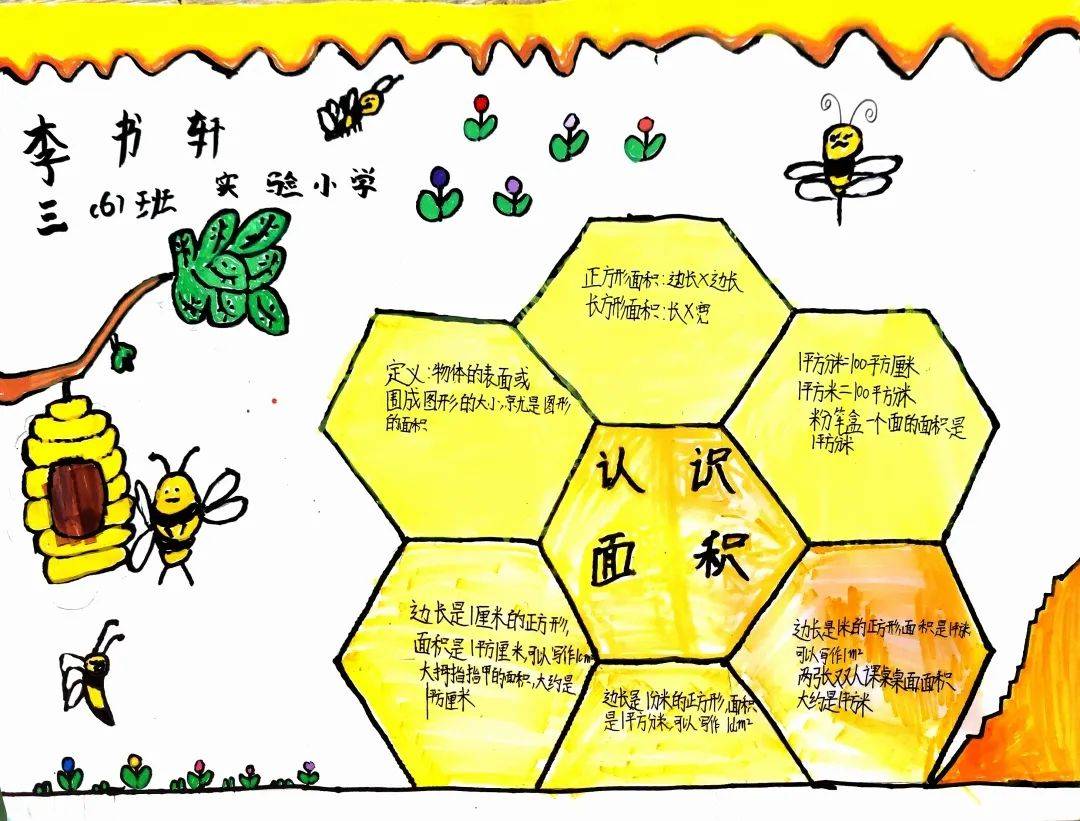 李书轩
三(6)班 实验小学
正方形面积:边长×边长
长方形面积:长×宽
定义:物体的表面或
围成图形的大小,就是图形
的面积
1平方分米=100平方厘米
1平方米=100平方分米
粉笔盒一个面的面积是
1平方分米
认识
面积
边长是1厘米的正方形,
面积是1平方厘米,可以写作1cm²
大拇指指甲的面积,大约是
1平方厘米
边长是1分米的正方形,面积
是1平方分米,可以写作1dm²
边长是1米的正方形,面积是1平方米,
可以写作1m²
两张双人课桌桌面面积
大约是1平方米